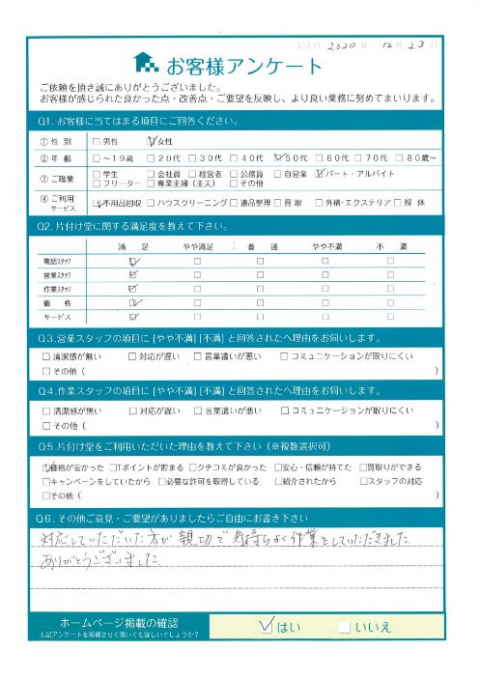 記入日 2020 年 12 月 23 日
お客様アンケート
ご依頼を頂き誠にありがとうございました。
お客様が感じられた良かった点・改善点・ご要望を反映し、より良い業務に努めてまいります。
Q1. お客様に当てはまる項目にご回答ください。
① 性 別 □男性 ☑女性
② 年 齢 □～19歳 □20代 □30代 □40代 ☑50代 □60代 □70代 □80歳～
③ ご職業 □学生 □会社員 □経営者 □公務員 □自営業 ☑パート・アルバイト
□フリーター □専業主婦（主夫） □その他
④ ご利用サービス ☑不用品回収 □ハウスクリーニング □遺品整理 □買取 □外構・エクステリア □解体
Q2. 片付け堂に関する満足度を教えて下さい。
満 足 やや満足 普 通 やや不満 不 満
電話スタッフ ☑ □ □ □ □
営業スタッフ ☑ □ □ □ □
作業スタッフ ☑ □ □ □ □
価 格 ☑ □ □ □ □
サービス ☑ □ □ □ □
Q3. 営業スタッフの項目に [やや不満] [不満] と回答されたへ理由をお伺いします。
□清潔感が無い □対応が遅い □言葉遣いが悪い □コミュニケーションが取りにくい
□その他（ ）
Q4. 作業スタッフの項目に [やや不満] [不満] と回答されたへ理由をお伺いします。
□清潔感が無い □対応が遅い □言葉遣いが悪い □コミュニケーションが取りにくい
□その他（ ）
Q5. 片付け堂をご利用いただいた理由を教えて下さい（※複数選択可）
☑価格が安かった □Tポイントが貯まる □クチコミが良かった □安心・信頼が持てた □買取りができる
□キャンペーンをしていたから □必要な許可を取得している □紹介されたから □スタッフの対応
□その他（ ）
Q6. その他ご意見・ご要望がありましたらご自由にお書き下さい
対応していただいた方が 親切で 気持ちよく作業をしていただきました
ありがとうございました
ホームページ掲載の確認 ☑はい □いいえ
上記アンケートを掲載させて頂いても宜しいでしょうか？